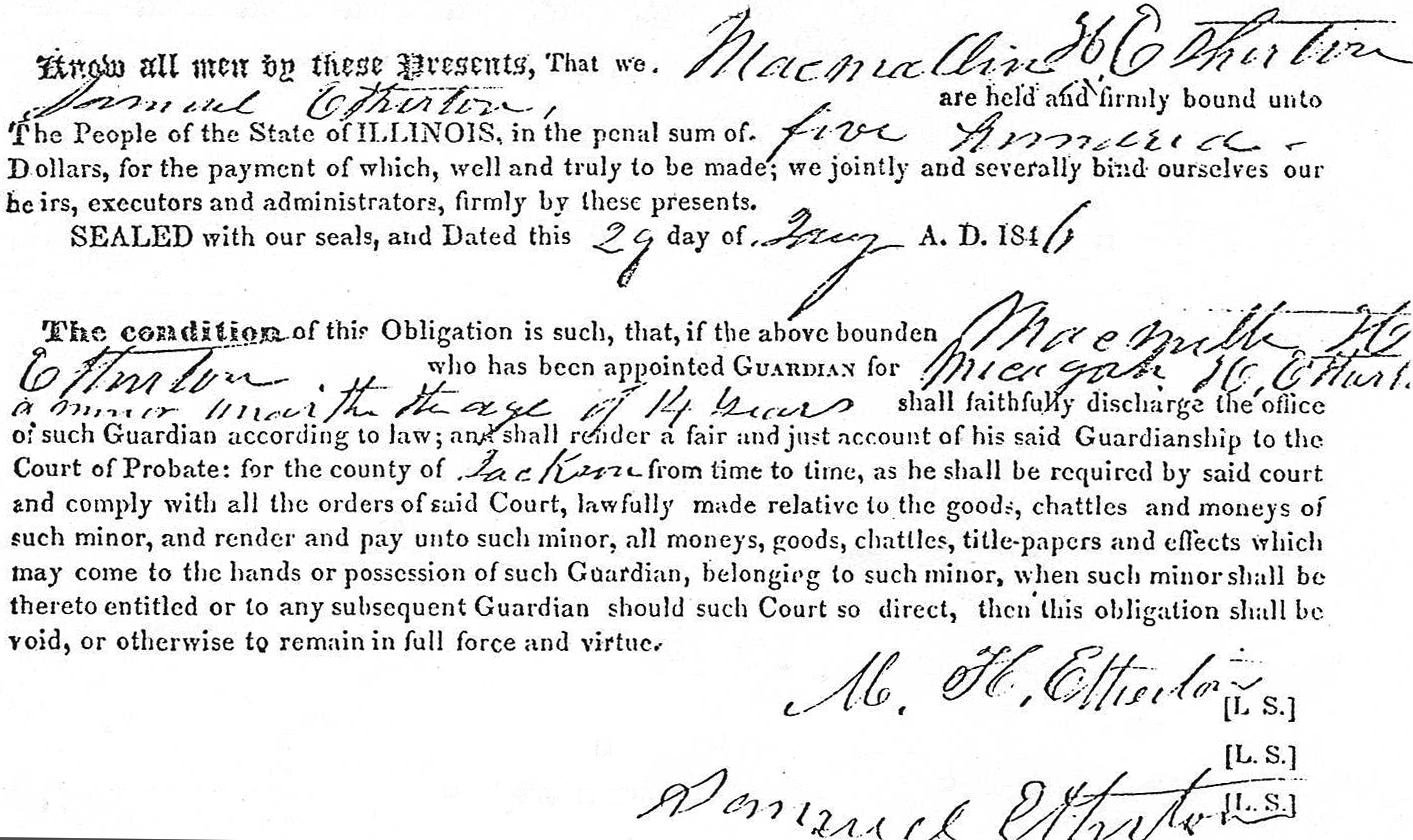 Know all men by these Presents, That we. Macmallin H. Etherton
Samuel Etherton, are held and firmly bound unto
The People of the State of ILLINOIS, in the penal sum of. five hundred -
Dollars, for the payment of which, well and truly to be made; we jointly and severally bind ourselves our
heirs, executors and administrators, firmly by these presents.
SEALED with our seals, and Dated this 29 day of Jany A. D. 1846
The condition of this Obligation is such, that, if the above bounden H
Etherton who has been appointed GUARDIAN for H. Ethert.
a minor under the age of 14 years shall faithfully discharge the office
of such Guardian according to law; and shall render a fair and just account of his said Guardianship to the
Court of Probate: for the county of Jackson from time to time, as he shall be required by said court
and comply with all the orders of said Court, lawfully made relative to the goods, chattles and moneys of
such minor, and render and pay unto such minor, all moneys, goods, chattles, title-papers and effects which
may come to the hands or possession of such Guardian, belonging to such minor, when such minor shall be
thereto entitled or to any subsequent Guardian should such Court so direct, then this obligation shall be
void, or otherwise to remain in full force and virtue.
M. H. Etherton [L S.]
[L. S.]
Samuel Etherton [L. S.]